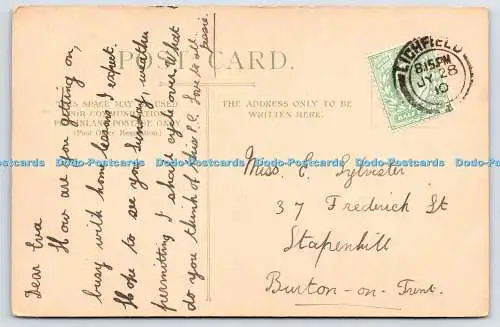 POST CARD.
THIS SPACE MAY BE USED
FOR COMMUNICATION
INLAND POSTAGE ONLY
(Post Office Regulation)
THE ADDRESS ONLY TO BE
WRITTEN HERE.
LICHFIELD
8.15 PM
JY 28
10
HALF
Dear Eva
How are you getting on,
busy with home lessons I expect.
Hope to see you Sunday, weather
permitting I shall cycle over. What
do you think of this P.C. Love to all
Jessie.
Miss. E. Sylvister
37 Frederick St
Stapenhill
Burton-on-Trent.
Dodo-Postcards Dodo-Postcards Dodo-Postcards Dodo-Postcards Dodo-Postcards Dodo-Postcards